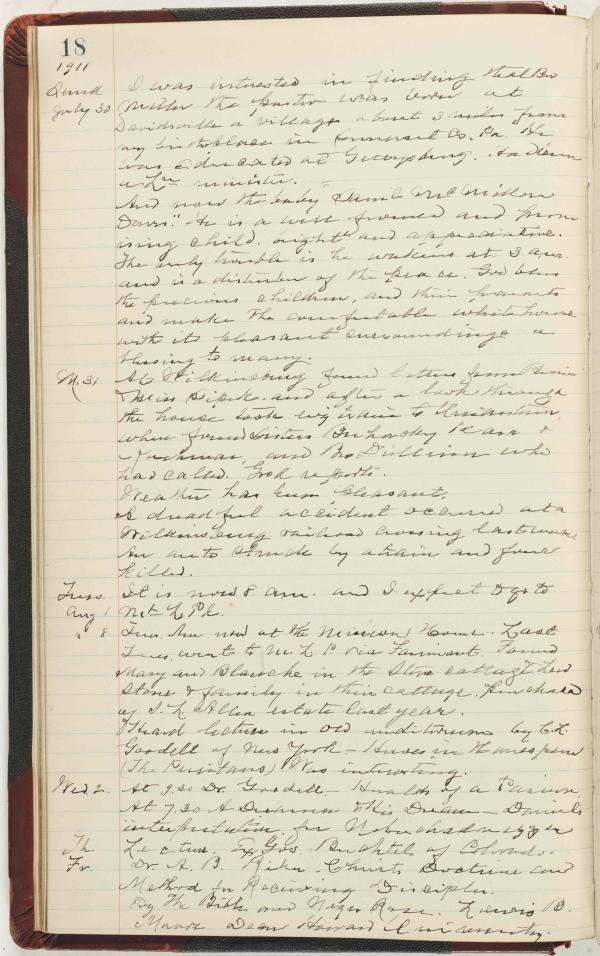 18
1911
Sund July 30 I was interested in finding that Bro
Miller the pastor was born at
Davidsville a village about 3 miles from
my birthplace in Somerset Co, Pa. He
was educated at Gettysburg. Has been
a Lun minister.
And now the baby "Daniel McMillan
Davis." He is a well formed and prom
ising child. bright and appreciative.
The only trouble is he wakens at 3 a.m.
and is a disturber of the peace. God bless
the precious children, and their parents
and make the comfortable white house
with its pleasant surroundings a
blessing to many.
M. 31 At Wilkinsburg found letters from
Miss and after a look through
the house took evg train to
where found sisters
and Bro who
had called. Good reports.
Weather has been pleasant.
A dreadful accident occurred at a
Wilkinsburg railroad crossing last week
An auto struck by a train and four
killed.
Tues. Aug 1 It is now 8 am. and I expect to go to
Mt L Pk.
" 8 Tues. Am now at the Mission Home. Last
Tues. went to Mt. L P via Fairmont. Found
Mary and Blanche in the Stone cottage. Lew
Stone & family in their cottage. Purchased
of S. L Allen estate last year.
Heard lecture in old auditorium by C. L.
Goodell of New York – Heroes in Homespun
(The Puritans) Was interesting.
Wed. 2. At 9.30 Dr. Goodell – Heralds of a Passion.
At 7.30 A Dreamer & His Dream – Daniels
interpretation for Nebuchadnezzer
Th. Lecture. Ex Gov. Buchtel of Colorado.
Fr. Dr. A. B. Riker. Christs Doctrine and
Method for Receiving Disciples.
Evg The Bible and Negro Race. Lewis B.
Moore Dean Howard University.